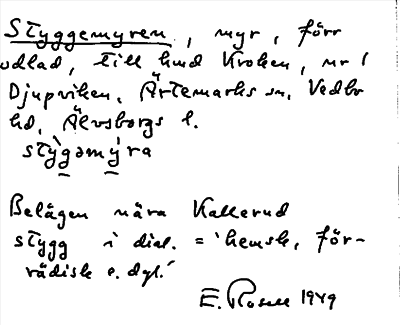 Styggemyren, myr, förr
odlad, till hmd Kroken, nr 1
Djupviken, Ärtemarks sn, Vedbo
hd, Älvsborgs l.
stỳgəmỳra
Belägen nära Kallerud
stygg i dial. = 'hemsk, för-
rädisk e. dgl.'
E. Rosell 1949